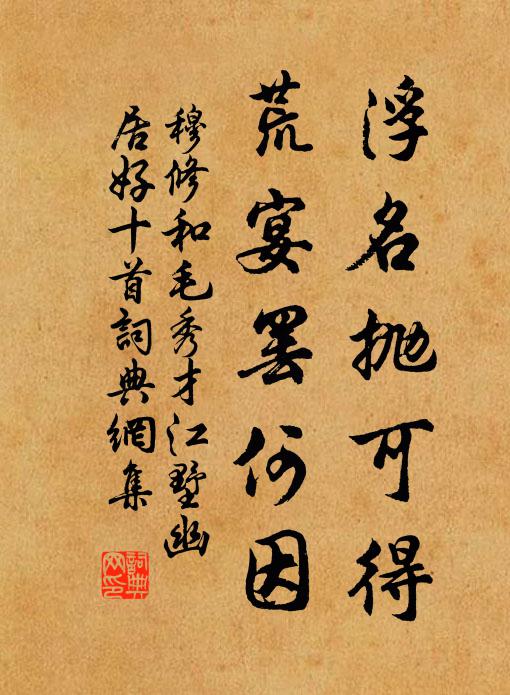 浮名抛可得
荒宴罢何因
穆修和毛秀才江墅幽
居好十首詞典網集
詞典
网印